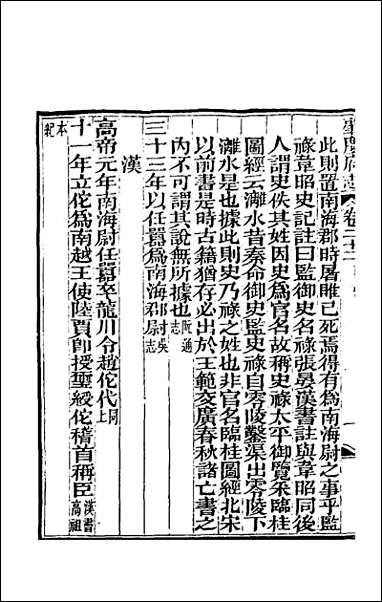 肇慶府志 卷二十二
此則置南海郡時屠睢已死焉得有為南海尉之事乎監
祿韋昭史記註曰監御史名祿張晏漢書註與韋昭同後
人謂史佚其姓因史為官名故稱史祿太平御覽采臨桂
圖經云灕水昔秦命御史監史祿自零陵鑿渠出零陵下
灕水是也據此則史乃祿之姓也非官名臨桂圖經北宋
以前書是時古籍猶存必出於王範交廣春秋諸亡書之
內不可謂其說無所據也阮通志
三十三年以任囂為南海郡尉吳志
漢
高帝元年南海尉任囂卒龍川令趙佗代同上
十一年立佗為南越王使陸賈即授璽綬佗稽首稱臣漢書高祖
本紀